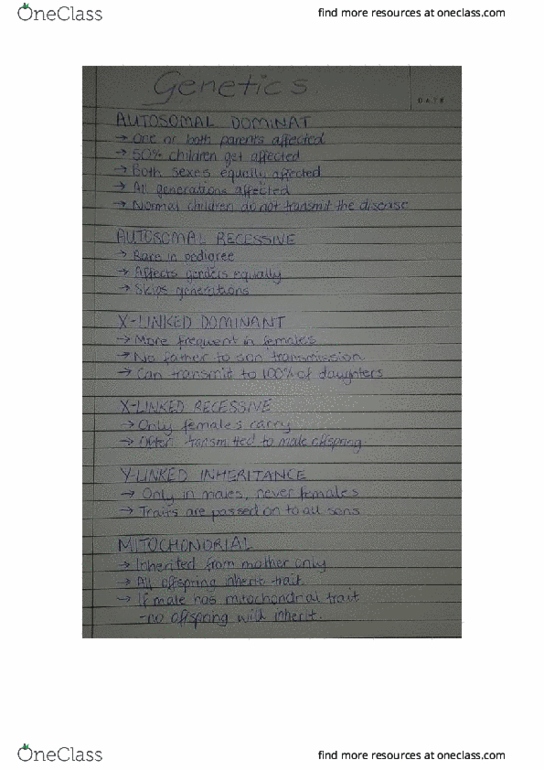 OneClass
find more resources at oneclass.com
Genetics
DATE
AUTOSOMAL DOMINAT
→ One or both parents affected
→ 50% children get affected
→ Both sexes equally affected
→ All generations affected
→ Normal children do not transmit the disease
AUTOSOMAL RECESSIVE
→ Rare in pedigree
→ Affects genders equally
→ Skips generations
X-LINKED DOMINANT
→ More frequent in females
→ No father to son transmission
→ Can transmit to 100% of daughters
X-LINKED RECESSIVE
→ Only females carry
→ Often transmitted to male offspring
Y-LINKED INHERITANCE
→ Only in males, never females
→ Traits are passed on to all sons
MITOCHONDRIAL
→ Inherited from mother only
→ All offspring inherit trait
→ If male has mitochondrial trait
- no offspring with inherit.
OneClass
find more resources at oneclass.com